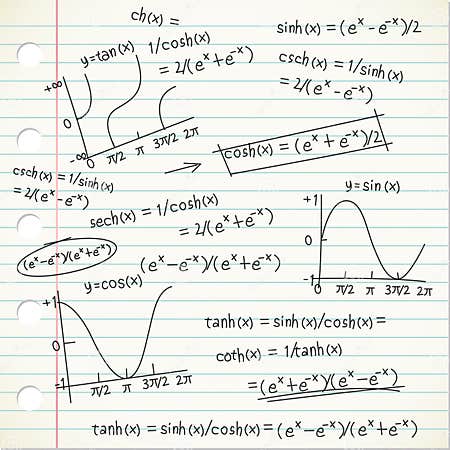 ch(x) =
sinh(x) = (eˣ - e⁻ˣ)/2
y=tan(x)
1/cosh(x)
= 2/(eˣ + e⁻ˣ)
csch(x) = 1/sinh(x)
= 2/(eˣ - e⁻ˣ)
+∞
0
-∞
0 π/2 π 3π/2 2π
cosh(x) = (eˣ + e⁻ˣ)/2
csch(x) = 1/sinh(x)
= 2/(eˣ - e⁻ˣ)
y=sin(x)
+1
0
-1
0 π/2 π 3π/2 2π
sech(x) = 1/cosh(x)
= 2/(eˣ + e⁻ˣ)
(eˣ-e⁻ˣ)/(eˣ+e⁻ˣ)
(eˣ-e⁻ˣ)/(eˣ+e⁻ˣ)
y=cos(x)
+1
0
-1
π/2 π 3π/2 2π
tanh(x) = sinh(x)/cosh(x) =
coth(x) = 1/tanh(x)
=(eˣ+e⁻ˣ)/(eˣ-e⁻ˣ)
tanh(x) = sinh(x)/cosh(x) = (eˣ-e⁻ˣ)/(eˣ+e⁻ˣ)